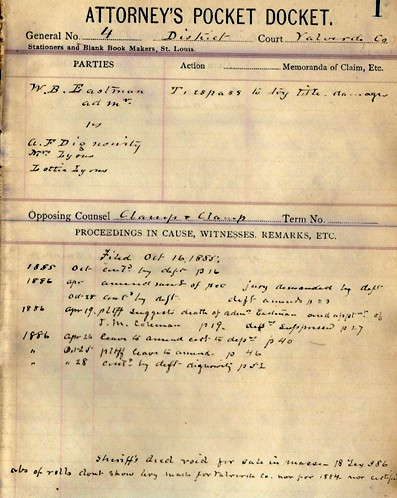 1
ATTORNEY'S POCKET DOCKET.
General No. 4 District Court Valverde Co
Stationers and Blank Book Makers, St. Louis.
PARTIES Action Memoranda of Claim, Etc.
W. B. Eastman Trespass to try title. damages
admr.
vs
A. F. Dignowity
Mrs Lyons
Lottie Lyons
Opposing Counsel Clamp & Clamp Term No.
PROCEEDINGS IN CAUSE, WITNESSES, REMARKS, ETC.
Filed Oct 16, 1885.
1885 Oct contd by deft p 16
1886 apr jury demanded by deft
Oct 28 contd by deft. deft amends p 23
1886 Apr 19. pltff suggests death of admr Eastman and apptmt of
J. M. Coleman p 19. suppressed p 27
1886 Apr 26 leave to amend p 40
" Oct 25 pltff leave to amend. p 46
" " 28 contd by deft dignowity p 52
Sheriff's deed void for sale in masse - 18 Tex 386
abs of rolls dont show levy made for Valverde Co. nor for 1884 nor